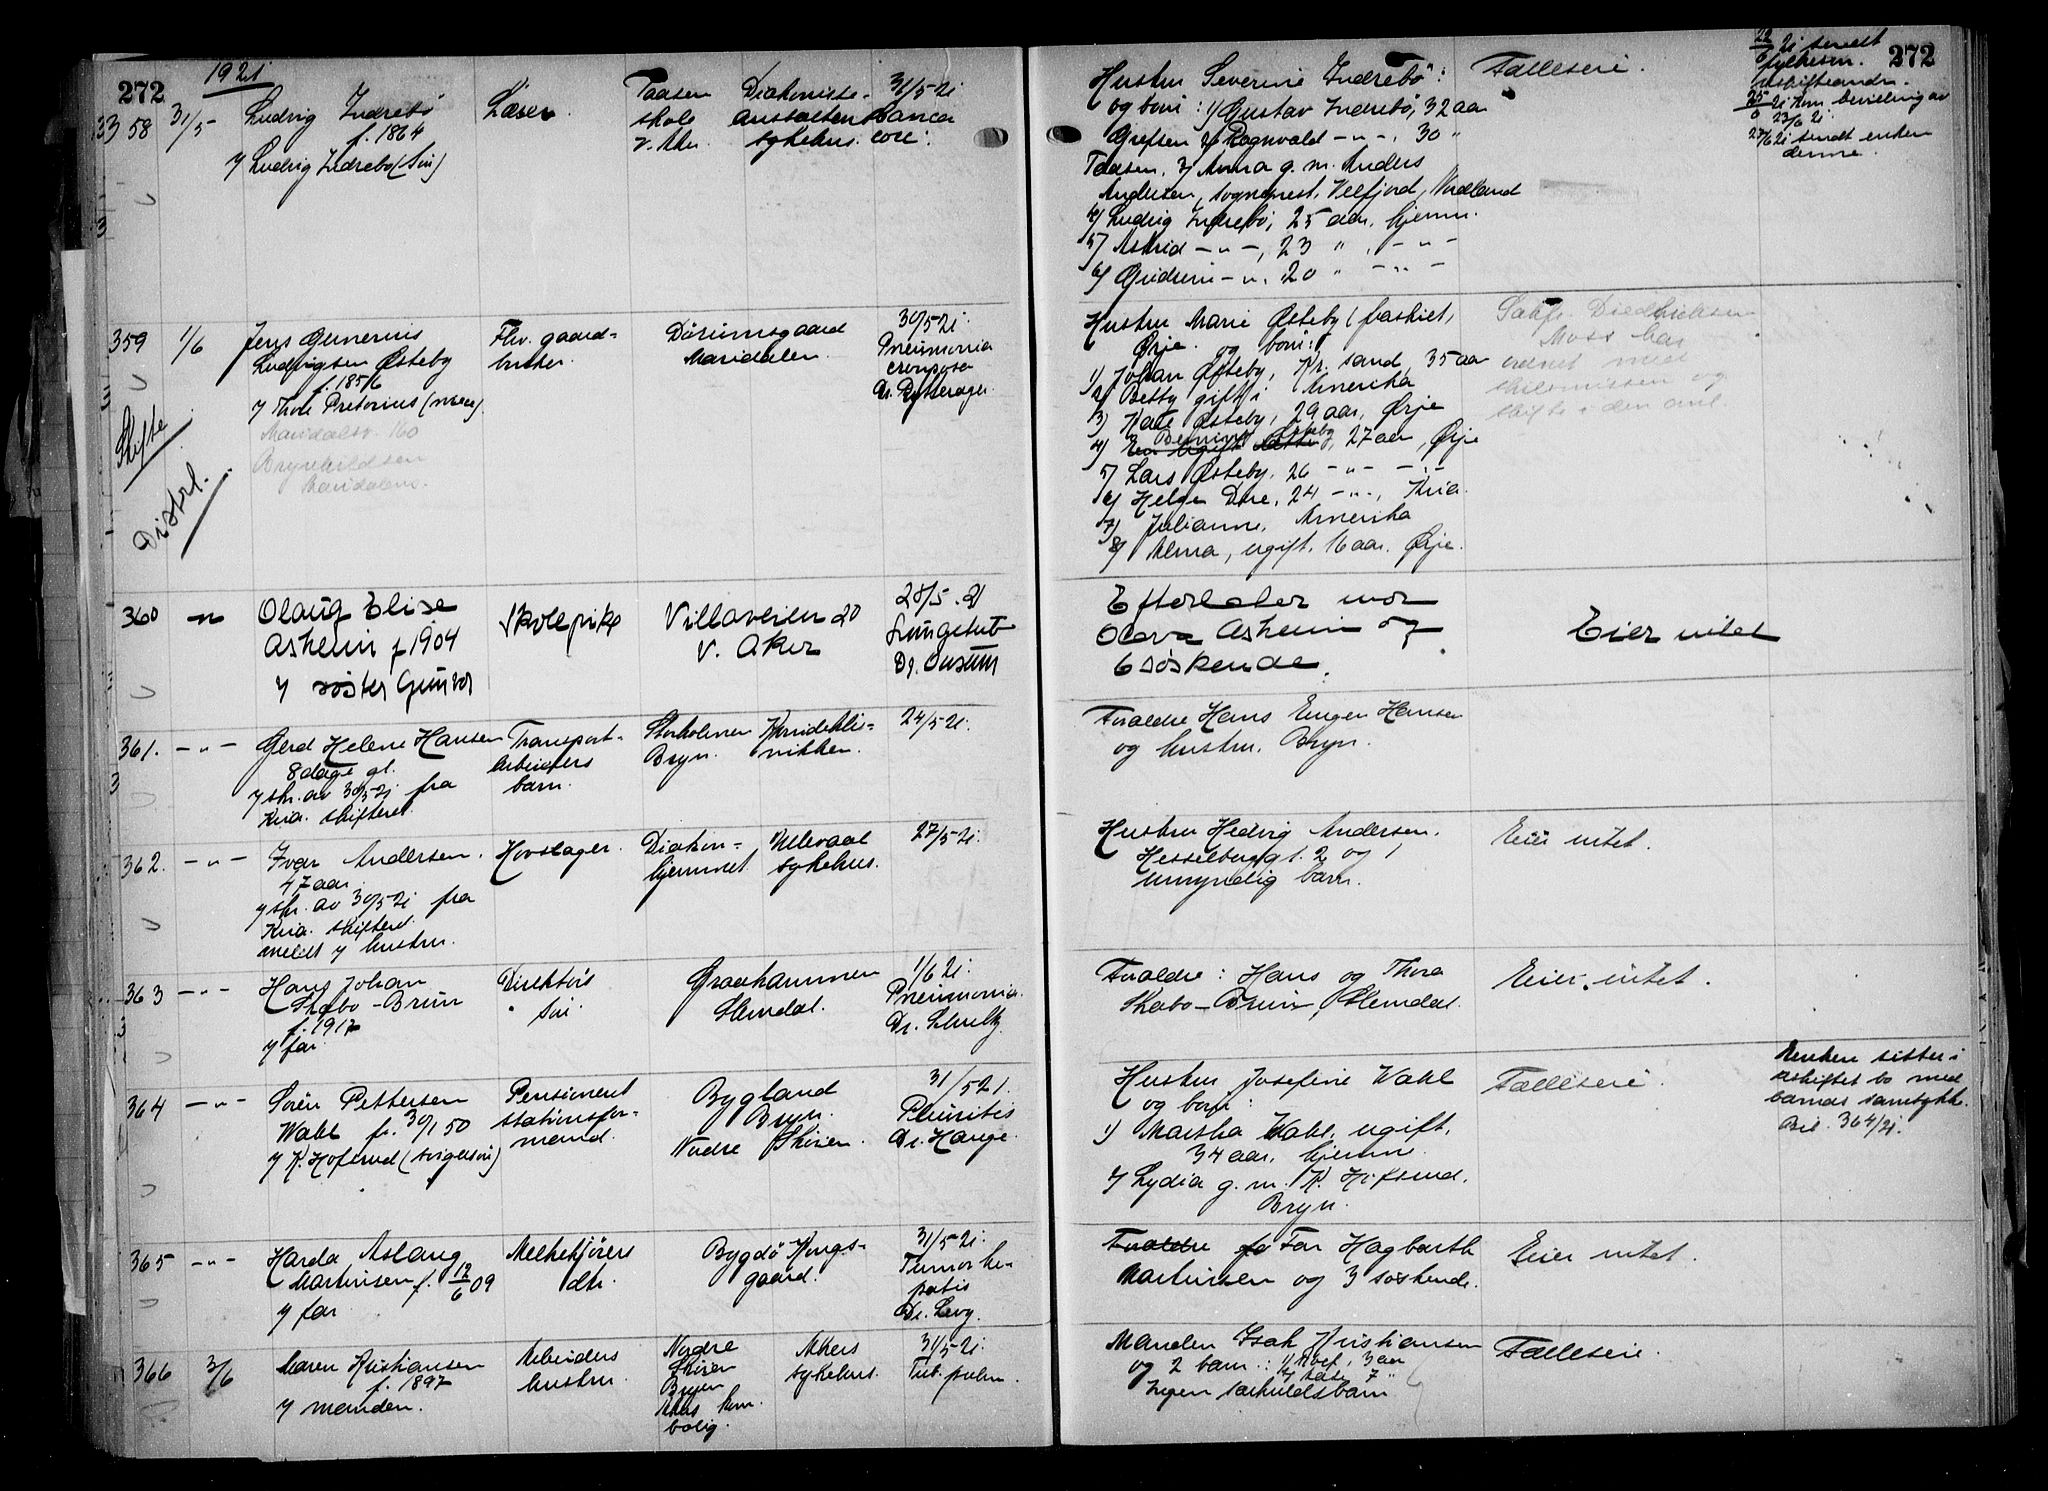 272
1921
58 31/5
Ludvig Indrebö
f. 1864
v/ Ludvig Indrebö (sön)
Lærer
Taasen
skole
v. Aker
Diakonisse-
anstaltens
sykehus.
31/5-21
Cancer
359 1/6
Skifte
Distrl.
Jens Gunerius
Ludvigsen Østeby
f. 1856
Maridalsv. 160
Brynhildsen
Maridalens.
Fhv. gaard-
bruker
Maridalen.
30/5-21.
Pneumonia
crouposa
360 — " —
Olaug Elise
Asheim f 1904
v/ søster Gunvor
Skolepike
Villaveien 20
V. Aker
28/5. 21
Lungetub
361. — " —
Gerd Helene Hansen
8 dage gl.
v/ skr. av 30/5-21 fra
Kria. skifteret
Transport-
arbeiders
barn.
Bryn.
Kvindekli-
nikken.
24/5-21.
362. — " —
Ivar Andersen.
47 aar
v/ skr. av 30/5-21 fra
Kria. skifteret
meldt v/ hustru.
Hovslager.
Diakon-
hjemmet
Ullevaal
sykehus.
27/5-21.
363 — " —
Hans Johan
Skabo-Brun
f. 1917
v/ far.
Direktörs
sön.
Graakammen
Slemdal.
1/6 21.
Pneumonia.
364 — " —
Sören Pettersen
Wahl f. 30/1 50
v/ K. Hofsrud (svigersön)
Pensioneret
stationsfor-
mand.
Bygland
Bryn.
Nordre Skøien.
31/5 21.
Pleuritis
Dr. Hauge.
365 — " —
Harda Aslaug
Martinsen f. 12/6 09
v/ far
Melkekjörers
dtr.
Bygdö Kongs-
gaard.
31/5-21.
Tumor he-
patis
Dr. Levy.
366 3/6
Maren Kristiansen
f. 1897
v/ manden.
Arbeiders
hustru.
Nordre
Skøien
Bryn
Akers kom.
bolig.
Akers
sykehus.
31/5-21.
Tub. pulm.
272
Hustru Severine Indrebö:
og barn: 1/ Gustav Indrebö, 32 aar
Grefsen 2/ Ragnvald — " —, 30 "
Taasen, 3/ Anna g. m. Anders
Andersen, sogneprest, Velfjord, Nordland
4/ Ludvig Indrebö, 25 aar, hjemme.
5/ Astrid — " —, 23 " , — " —
6/ Gudrun — " . 20 " — " —
Fælleseie.
Hustru Marie Østeby (fraskilt,
Ørje. og barn:
1/ Johan Østeby, Kr. sand, 35 aar
2/ Betty gift i Amerika
3/ Kate Østeby, 29 aar, Ørje
4/ Østeby, 27 aar, Ørje
5/ Lars Østeby, 26 — " — — " —
6/ Helga Dore, 24 — " —, Kria.
7/ Julianne, Amerika
8/ Alma, ugift, 16 aar, Ørje.
Sakf. Diedrichsen
Moss har
ordnet med
skilsmissen og
skifte i den anl.
Efterlater mor
Olava Asheim og
6 söskende.
Eier intet
Foraldre Hans Eugen Hansen
og hustru, Bryn.
Hustru Hedvig Andersen,
Hesselbergs gt. 2 og 1
umyndig barn.
Eier intet.
Foraldre: Hans og Thora
Skabo-Brun, Slemdal.
Eier intet.
Hustru Josefine Wahl
og barn:
1/ Martha Wahl, ugift,
34 aar, hjemme.
2/ Lydia g. m. K. Hofsrud,
Bryn.
Fælleseie.
Enken sitter i
uskiftet bo med
barnas samtykke.
Bil. 364/21.
Foraldre Far Hagbarth
Martinsen og 3 söskende.
Eier intet.
Manden Isak Kristiansen
og 2 barn: 1/ Rolf, 3 aar
Ingen særkuldsbarn
Fælleseie.